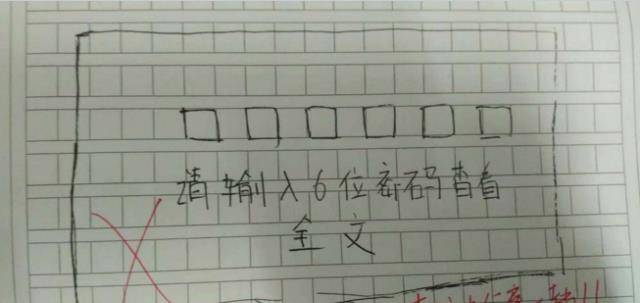 请输入6位密码查看
全文